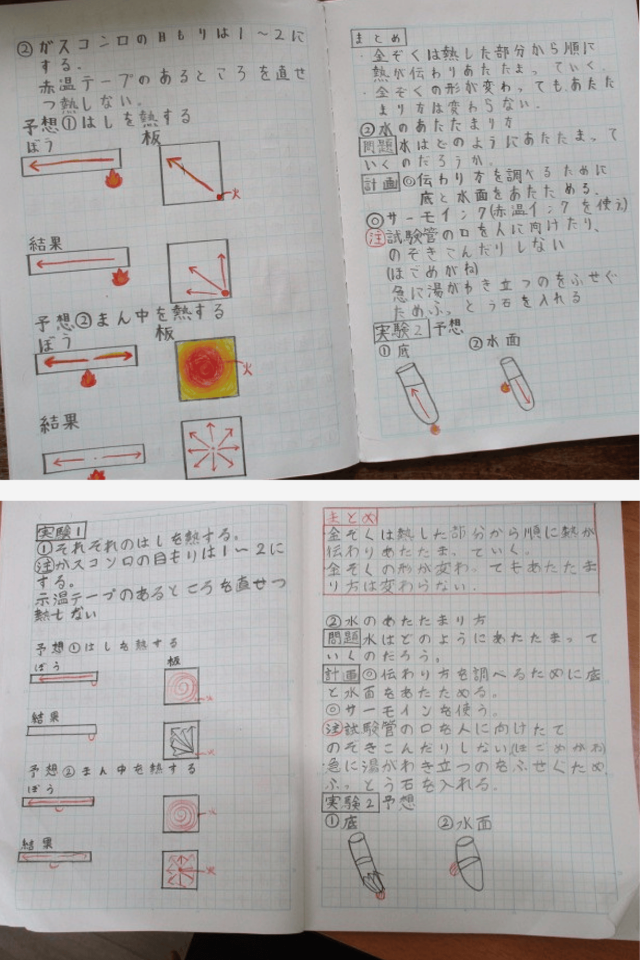 ②ガスコンロの目もりは1〜2に
する。
赤温テープのあるところを直せ
つ熱しない。
予想①はしを熱する
ぼう
板
火
結果
予想②まん中を熱する
ぼう
板
火
結果
まとめ
・金ぞくは熱した部分から順に
熱が伝わりあたたまっていく。
・金ぞくの形が変わっても、あたた
まり方は変わらない。
②水のあたたまり方
問題 水はどのようにあたたまって
いくのだろうか。
計画 ◎伝わり方を調べるために
底と水面をあたためる。
◎サーモインク(赤温インクを使う)
注 試験管の口を人に向けたり、
のぞきこんだりしない
(ほごめがね)
急に湯がわき立つのをふせぐ
ためふっとう石を入れる
実験2 予想
①底
②水面
実験1
①それぞれのはしを熱する。
注 ガスコンロの目もりは1〜2に
する。
示温テープのあるところを直せつ
熱しない
予想①はしを熱する
ぼう
板
火
結果
火
予想②まん中を熱する
ぼう
火
結果
火
まとめ
金ぞくは熱した部分から順に熱が
伝わりあたたまっていく。
金ぞくの形が変わってもあたたま
り方は変わらない.
②水のあたたまり方
問題 水はどのようにあたたまって
いくのだろう。
計画 ◎伝わり方を調べるために底
と水面をあたためる。
◎サーモインを使う。
注 試験管の口を人に向けたて
のぞきこんだりしない(ほごめがね)
急に湯がわき立つのをふせぐため
ふっとう石を入れる.
実験2 予想
①底
②水面